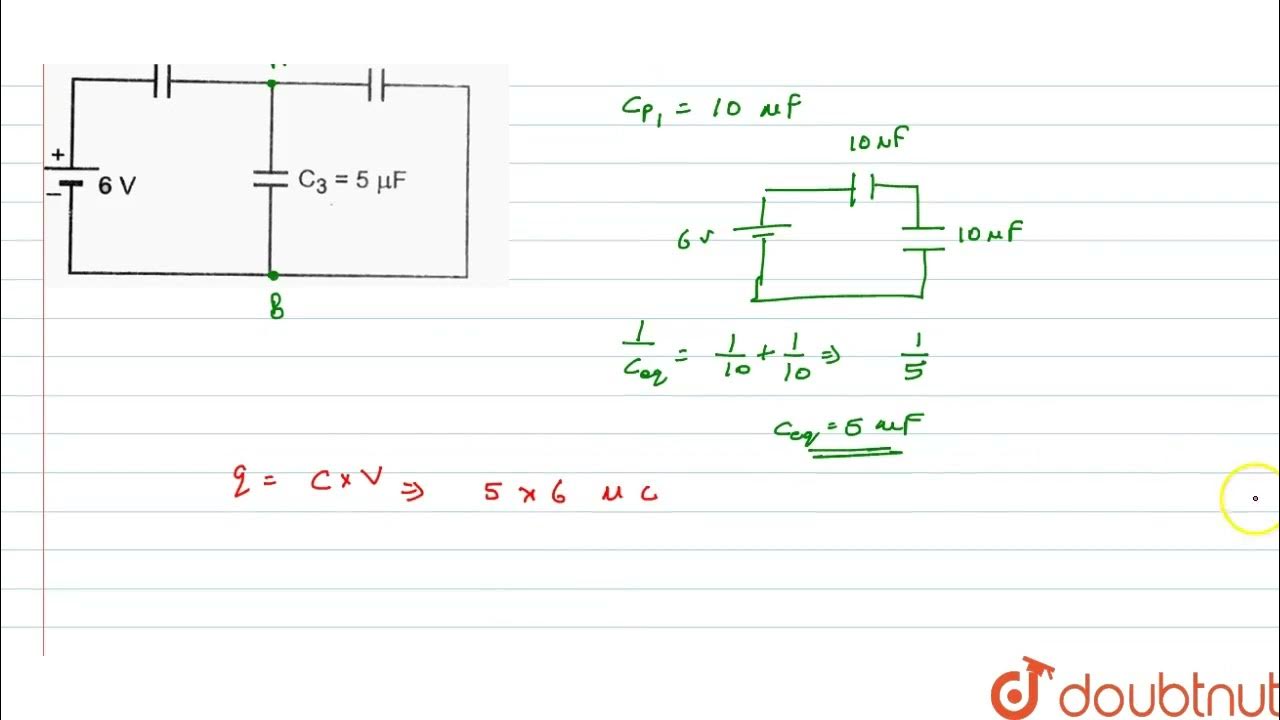 +
6 V
−
C₃ = 5 μF
B
Cp₁ = 10 μF
10 μF
6 v
10 μF
1/Ceq = 1/10 + 1/10 ⇒ 1/5
Ceq = 5 μF
q = C × V ⇒ 5 × 6 μ C
doubtnut